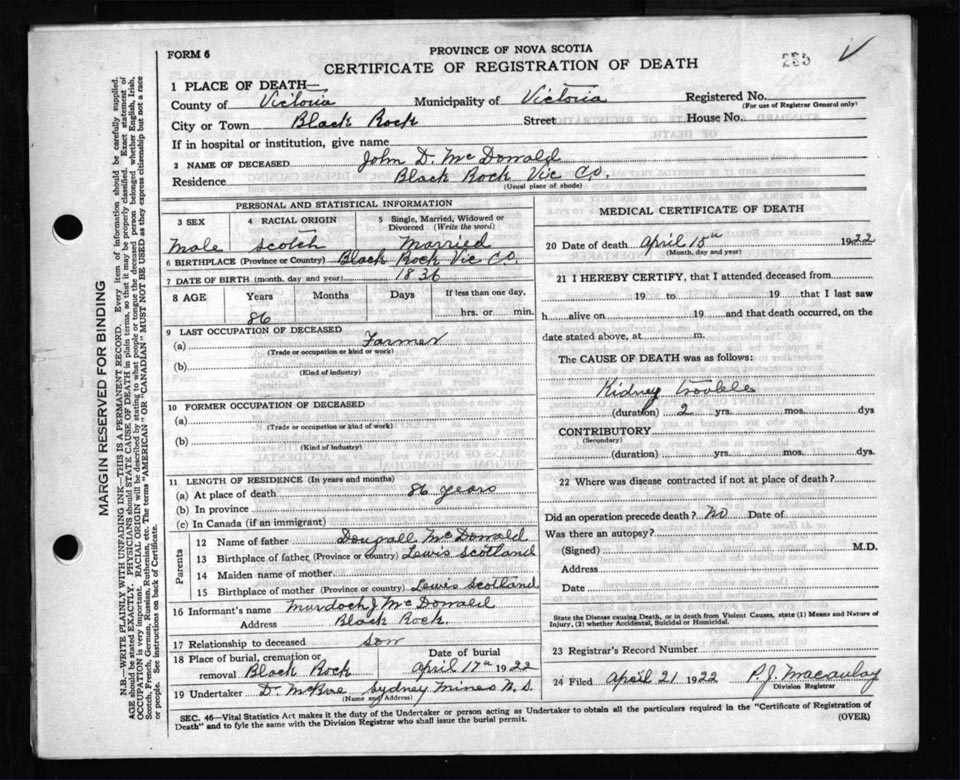 PROVINCE OF NOVA SCOTIA
FORM 6
CERTIFICATE OF REGISTRATION OF DEATH
295
1 PLACE OF DEATH—
County of Victoria Municipality of Victoria Registered No.
(For use of Registrar General only)
City or Town Black Rock Street House No.
If in hospital or institution, give name
2 NAME OF DECEASED John D. McDonald
Residence Black Rock Vic Co.
(Usual place of abode)
PERSONAL AND STATISTICAL INFORMATION
3 SEX 4 RACIAL ORIGIN 5 Single, Married, Widowed or Divorced (Write the word)
Male Scotch Married
6 BIRTHPLACE (Province or Country) Black Rock Vic Co.
7 DATE OF BIRTH (month, day and year) 1836
8 AGE Years Months Days If less than one day,
86 hrs. or min.
9 LAST OCCUPATION OF DECEASED
(a) Farmer
(Trade or occupation or kind or work)
(b)
(Kind of industry)
10 FORMER OCCUPATION OF DECEASED
(a)
(Trade or occupation or kind or work)
(b)
(Kind of industry)
11 LENGTH OF RESIDENCE (In years and months)
(a) At place of death 86 years
(b) In province
(c) In Canada (if an immigrant)
Parents
12 Name of father Dougall McDonald
13 Birthplace of father (Province or country) Lewis Scotland
14 Maiden name of mother
15 Birthplace of mother (Province or country) Lewis Scotland
16 Informant's name Murdoch J McDonald
Address Black Rock.
17 Relationship to deceased son
18 Place of burial, cremation or removal Black Rock Date of burial April 17th 1922
19 Undertaker D. McRae Sydney Mines N.S.
(Name and Address)
MEDICAL CERTIFICATE OF DEATH
20 Date of death April 15th 1922
(Month, day and year)
21 I HEREBY CERTIFY, that I attended deceased from
19 to 19 that I last saw
h alive on 19 and that death occurred, on the
date stated above, at m.
The CAUSE OF DEATH was as follows:
Kidney trouble
(duration) 2 yrs. mos. dys
CONTRIBUTORY
(Secondary)
(duration) yrs. mos. dys.
22 Where was disease contracted if not at place of death?
Did an operation precede death? No Date of
Was there an autopsy?
(Signed) M.D.
Address
Date
State the Disease causing Death, or in Death from Violent Causes, state (1) Means and Nature of
Injury, (2) whether Accidental, Suicidal or Homicidal.
23 Registrar's Record Number
24 Filed April 21 1922 P.J. Macaulay
Division Registrar
SEC. 46—Vital Statistics Act makes it the duty of the Undertaker or person acting as Undertaker to obtain all the particulars required in the "Certificate of Registration of
Death" and to fyle the same with the Division Registrar who shall issue the burial permit. (OVER)
MARGIN RESERVED FOR BINDING
N.B.—WRITE PLAINLY WITH UNFADING INK—THIS IS A PERMANENT RECORD. Every item of information should be carefully supplied.
AGE should be stated EXACTLY. PHYSICIANS should STATE CAUSE OF DEATH in plain terms, so that it may be properly classified. Exact statement of
OCCUPATION is very important. RACIAL ORIGIN will be described by stating to what people or tongue the deceased person belonged whether English, Irish,
Scotch, French, German, Russian, Ruthenian, etc. The terms "AMERICAN" OR "CANADIAN" MUST NOT BE USED as they express citizenship but not a race
or people. See instructions on back of Certificate.